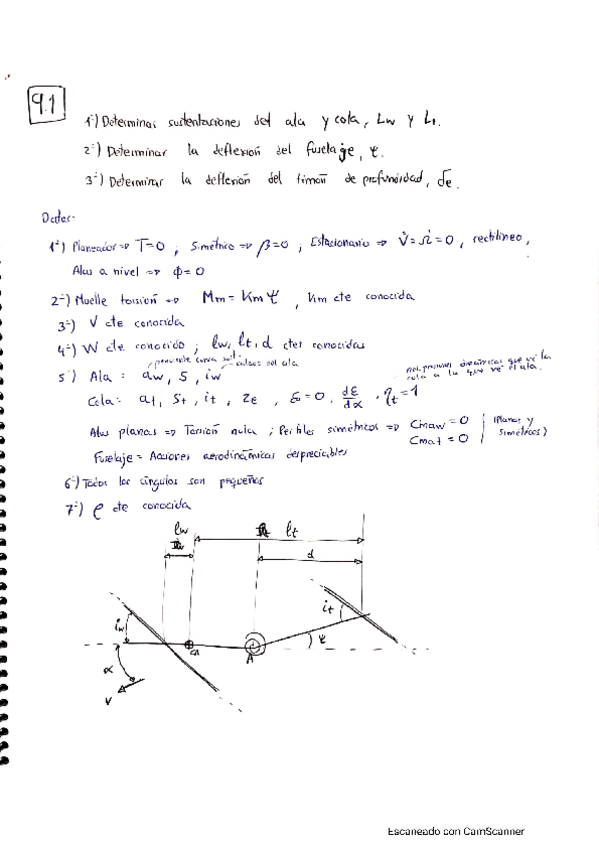 9.1
1º) Determinar sustentaciones del ala y cola, Lw y Lt.
2º) Determinar la deflexión del fuselaje, Ψ.
3º) Determinar la deflexión del timón de profundidad, δe.
Datos:
1º) Planeador => T=0 ; Simétrico => β=0 ; Estacionario => V̇=Ω̇=0 , rectilíneo,
Alas a nivel => Φ=0
2º) Muelle torsión => Mm = Km Ψ , Km cte conocida
3º) V cte conocida
4º) W cte conocido ; lw, lt, d ctes conocidas
pendiente curva sust.
calaje del ala
rel. presiones dinámicas que ve la
cola a la que ve el ala.
5º) Ala : aw, S, iw
Cola: at, St, it, τε , ε=0, dε/dα , ηt=1
Alas planas => Torsión nula ; Perfiles simétricos => Cmaw = 0
Cmat = 0
(Planas y
simétricos)
Fuselaje = Acciones aerodinámicas despreciables
6º) Todos los ángulos son pequeños
7º) ρ cte conocida
lw
lt
d
iw
it
Ψ
A
α
V
Escaneado con CamScanner